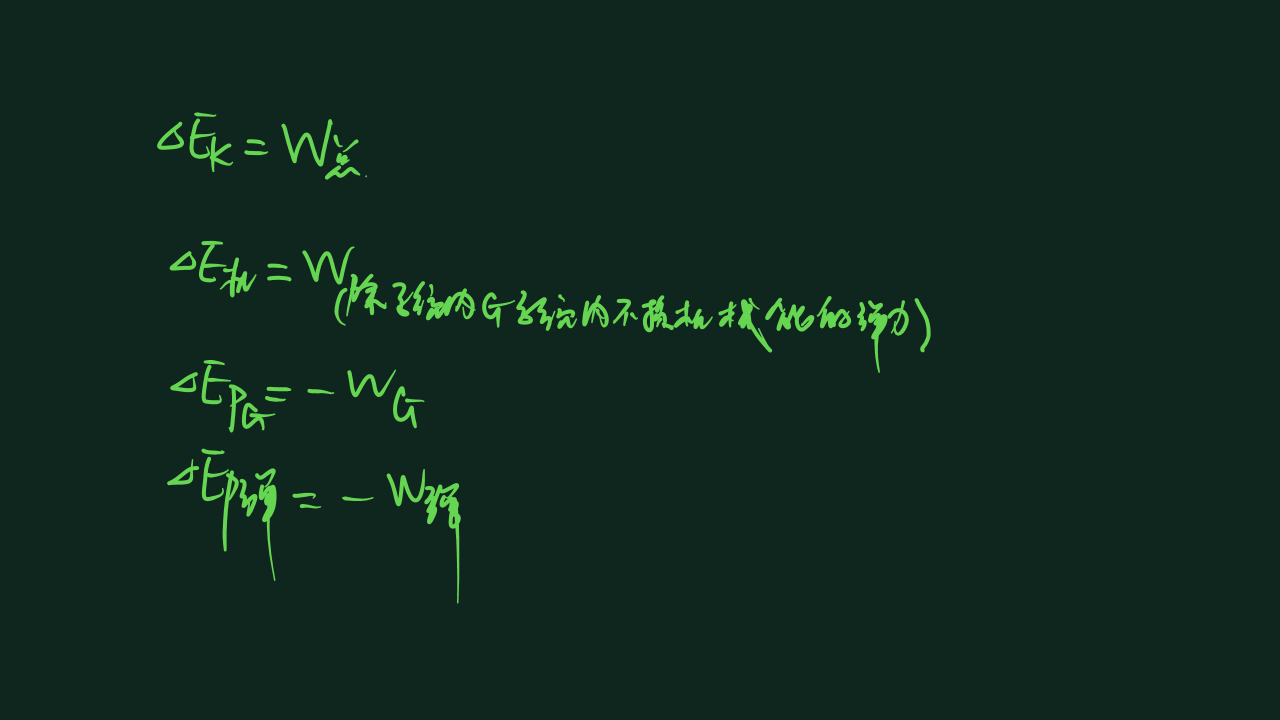 ΔEₖ = W总
ΔE机 = W(除系统内G系统内不损机械能的弹力)
ΔE_{PG} = -W_G
ΔE_{P弹} = -W弹